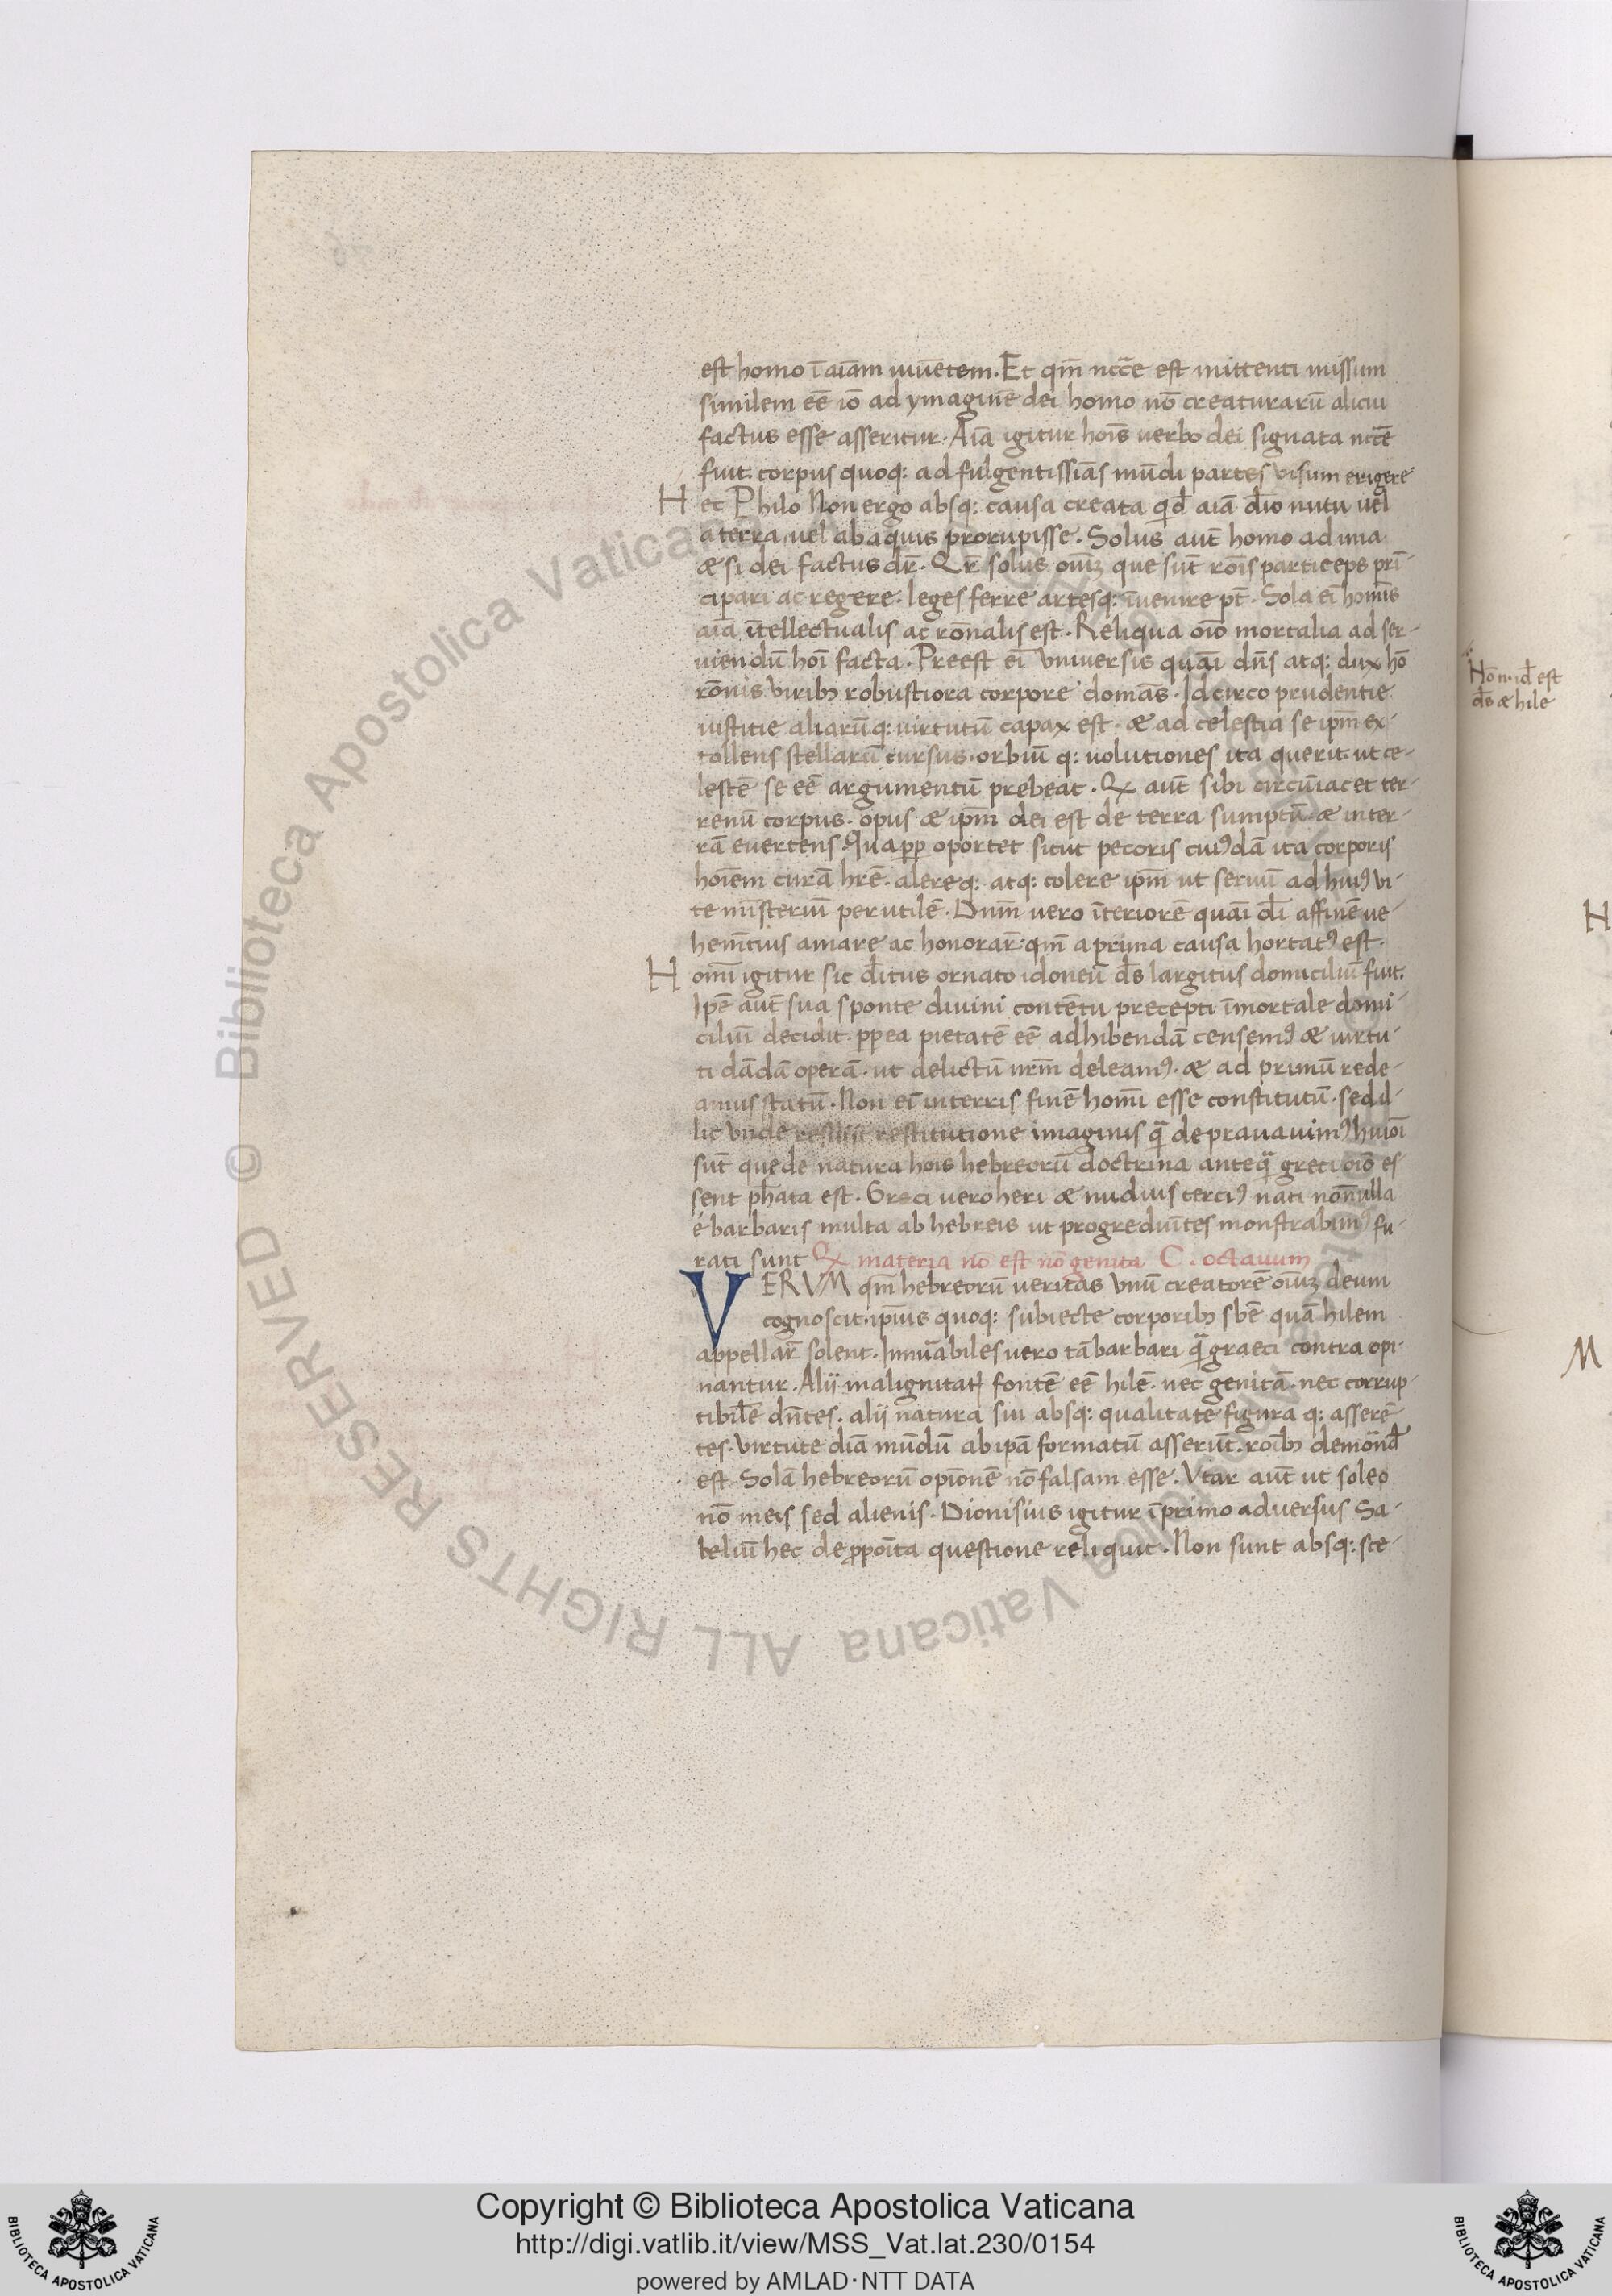 est homo ī aīam viuētem. Et qm̄ ncc̄e est mittenti missum
similem eē iō ad ymaginē dei homo nō creaturarū alicui
factus esse asseritur. Aīa igitur hoīs uerbo dei signata ncc̄e
fuit. corpus quoq: ad fulgentissīas mūdi partes visum erigere
H ec Philo Non ergo absq: causa creata qd̄ aīa dīo nutu uel
a terra uel ab aquis prorupisse. Solus aut̄ homo ad ima
æ si dei factus dr̄. Qr̄ solus oīuꝫ que sūt roīs particeps prī-
cipari ac regere. leges ferre artesq: īuenire pt̄. Sola eī homīs
aīa ītellectualis ac rōnalis est. Reliqua oīo mortalia ad ser-
uiendū hoī facta. Preest eī vniuersis quāi dn̄s atq: dux hō
rōnis viribꝰ robustiora corpore domās. Idcirco prudentie
iustitie aliarūq: uirtutū capax est. æ ad celestia se ipm̄ ex-
tollens stellarū cursus. orbiū q: uolutiones ita querit. ut ce-
lestē se eē argumentū prebeat. Qꝫ aut̄ sibi circūiacet ter-
renū corpus. opus æ ipm̄ dei est de terra sumptū. æ in ter-
rā euertens. Quapp̱ oportet sicut pecoris cuiꝰdā ita corporis
hoīem curā hr̄e. alereq: atq: colere ipm̄ ut seruū ad huiꝰ vi-
te mīsteriū perutilē. Dnm̄ uero īteriorē quāi dī affinē ue-
hem̄cius amare ac honorar̄. qm̄ a prima causa hortatꝰ est.
H omī igitur sic d̄itus ornato idoneū ds̄ largitus domiciliū fuit.
Ipē aut̄ sua sponte diuini contētu precepti īmortale domi-
ciliū decidit. pp̱ea pietatē eē adhibendā censemꝰ æ uirtu-
ti dādā operā. ut delictū nrm̄ deleamꝰ. æ ad primū rede-
amus statū. Non eī in terris finē homī esse constitutū. sed il-
lic vnde restitutione imaginis qᷓ deprauauimꝰ huiōi
sūt que de natura hoīs hebreorū doctrina anteqᷓ greci oīo es-
sent ph̄ata est. Greci uero heri æ nudius terciꝰ nati nōnulla
é barbaris multa ab hebreis ut progrediētes monstrabimꝰ fu-
rati sunt Qꝫ materia nō est nō genita C. octauum
VERVM qm̄ hebreorū ueritas vnū creatorē oīuꝫ deum
cognoscit. ipīus quoq: subiecte corporibꝰ sb̄e quā hilem
appellar̄ solent. Innūabiles uero tā barbari qᷓ graeci contra opi-
nantur. Alij malignitatꝭ fontē eē hilē. nec genitā. nec corrup-
tibilē dn̄tes. alij natura sui absq: qualitate figura q: asserē-
tes. virtute dīa mūdū ab ipā formatū asserūt. roībꝰ demōnd̄
est. Solā hebreorū opīonē nō falsam esse. Vtar aut̄ ut soleo
nō meis sed alienis. Dionisius igitur ī primo aduersus Sa-
beliū hec de ꝓpoīta questione reliquit. Non sunt absq: sce-
Hōn. id̄ est
ds̄ æ hile
H
M
Biblioteca Apostolica Vaticana
© Biblioteca Apostolica Vaticana ALL RIGHTS RESERVED
Copyright © Biblioteca Apostolica Vaticana
http://digi.vatlib.it/view/MSS_Vat.lat.230/0154
powered by AMLAD·NTT DATA
BIBLIOTECA APOSTOLICA VATICANA
BIBLIOTECA APOSTOLICA VATICANA